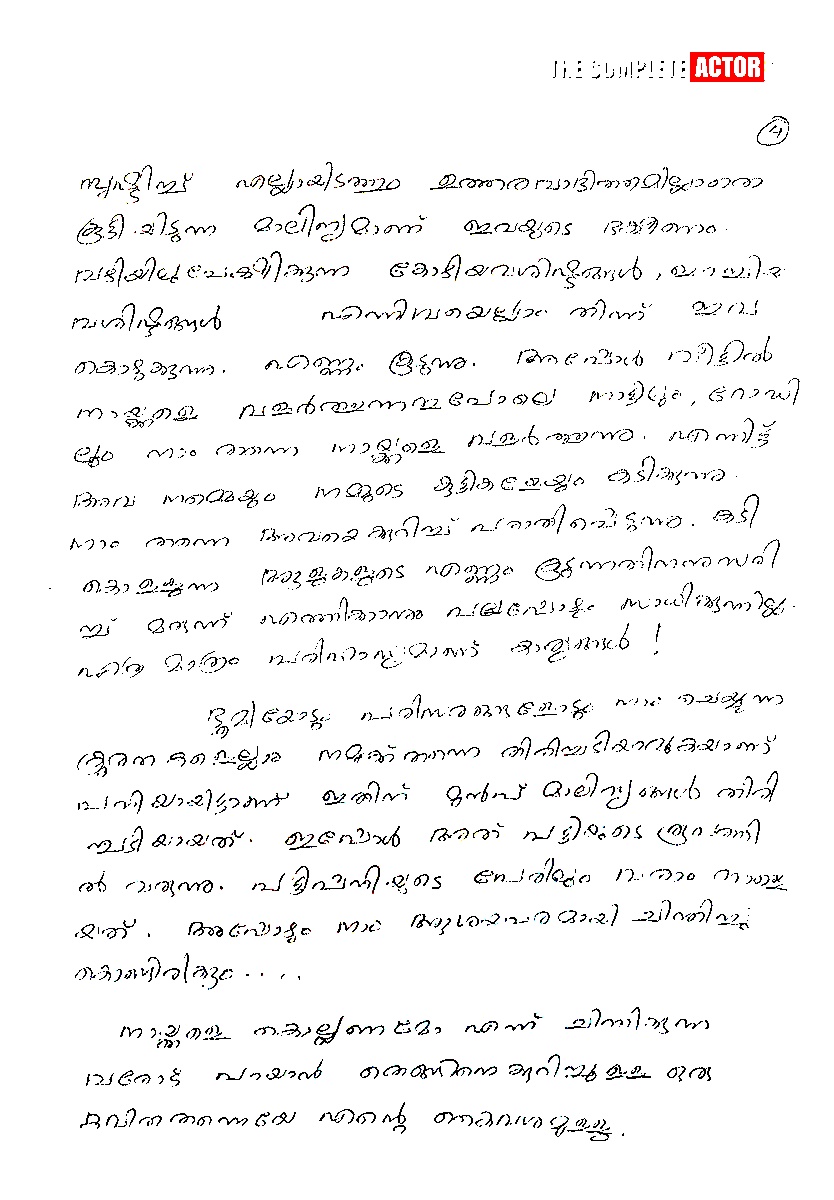 THE COMPLETE ACTOR
4
സൃഷ്ടിച്ച് എല്ലായിടത്തും ഉത്തരവാദിത്തമില്ലാതെ
കൂട്ടിയിടുന്ന മാലിന്യമാണ് ഇവയുടെ ഭക്ഷണം.
വഴിയിലുപേക്ഷിക്കുന്ന കോഴിയവശിഷ്ടങ്ങൾ, ഇറച്ചിയ
വശിഷ്ടങ്ങൾ എന്നിവയെല്ലാം തിന്ന് ഇവ
കൊഴുക്കുന്നു. എണ്ണം കൂടുന്നു. അപ്പോൾ വീട്ടിൽ
നായ്ക്കളെ വളർത്തുന്നതുപോലെ നാട്ടിലും, റോഡി
ലും നാം തന്നെ നായ്ക്കളെ വളർത്തുന്നു. എന്നിട്ട്
അവ നമ്മെയും നമ്മുടെ കുട്ടികളേയും കടിക്കുന്നു.
നാം തന്നെ അവയെക്കുറിച്ച് പരാതിപ്പെടുന്നു. കടി
കൊള്ളുന്ന ആളുകളുടെ എണ്ണം കൂടുന്നതിനനുസരി
ച്ച് മരുന്ന് എത്തിക്കാനും പലപ്പോഴും സാധിക്കുന്നില്ല.
എത്ര മാത്രം പരിഹാസ്യമാണ് കാര്യങ്ങൾ!
ഭൂമിയോടും പരിസരങ്ങളോടും നാം ചെയ്യുന്ന
ക്രൂരതകളെല്ലാം നമുക്ക് തന്നെ തിരിച്ചടിയാവുകയാണ്
പനിയായിട്ടാണ് ഇതിന് മുൻപ് മാലിന്യങ്ങൾ തിരി
ച്ചടിയായത്. ഇപ്പോൾ അത് പട്ടിയുടെ രൂപത്തി
ൽ വരുന്നു. പട്ടിപ്പനിയുടെ പേരിലും വരാം നാളെ
യത്. അപ്പോഴും നാം ആശയപരമായി ചിന്തിച്ചു
കൊണ്ടിരിക്കും.....
നായ്ക്കളെ കൊല്ലണമോ എന്ന് ചിന്തിക്കുന്ന
വരോട് പറയാൻ തെങ്ങിനെക്കുറിച്ചുള്ള ഒരു
കവിത തന്നെയേ എന്റെ കൈവശമുള്ളൂ.